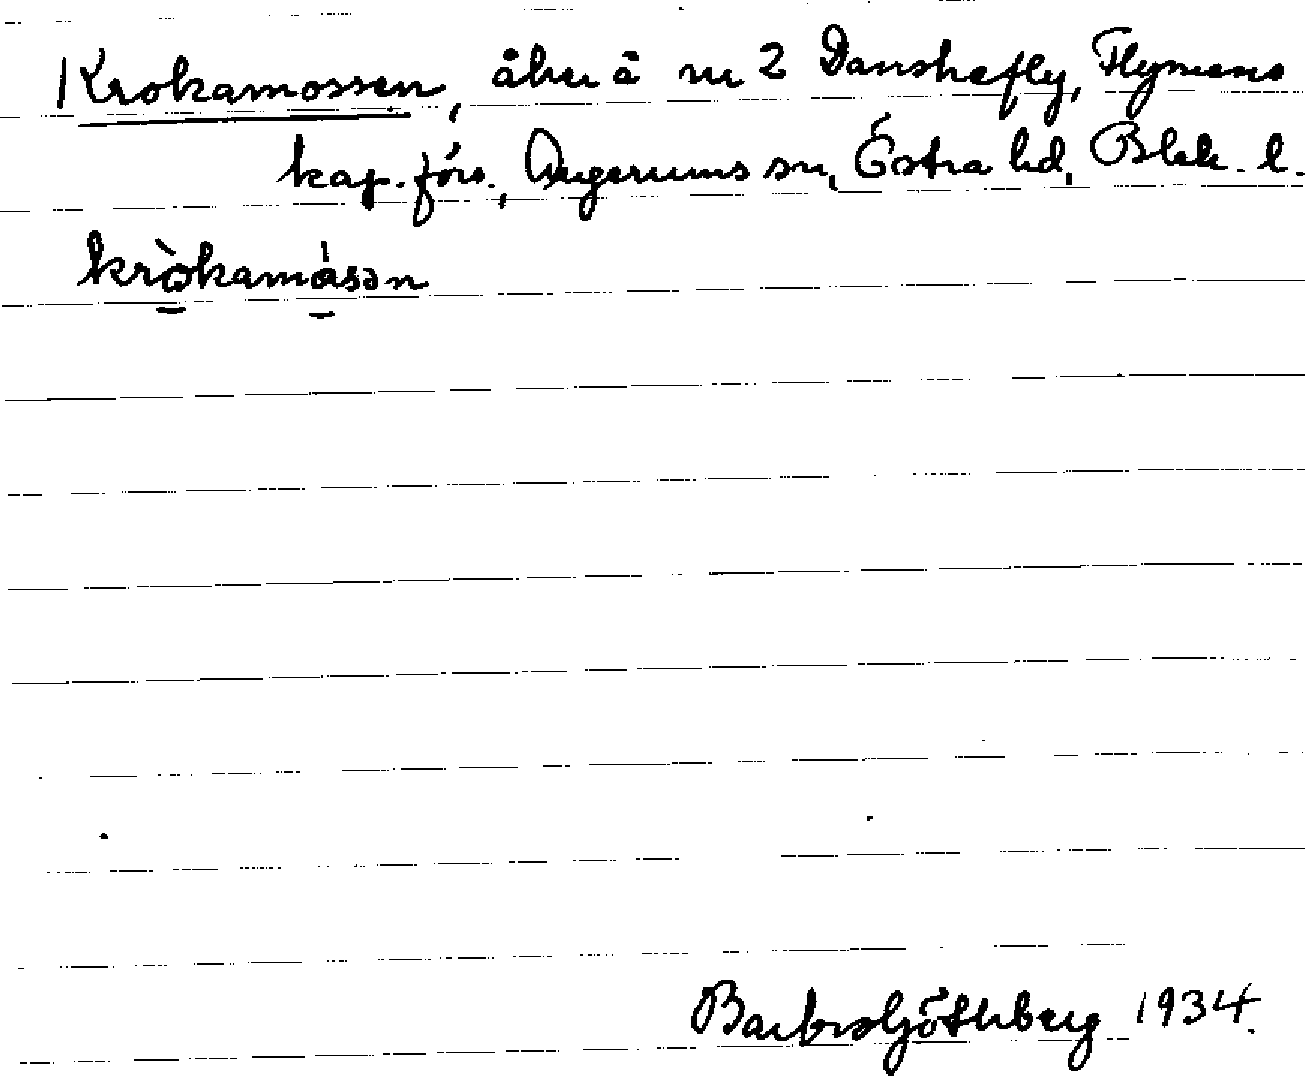 Krokamossen, åker å nr 2 Danskefly, Flymens
kap. förs., Augerums sn, Östra hd, Blek. l.
kròkamásən
Barbro Göthberg 1934.